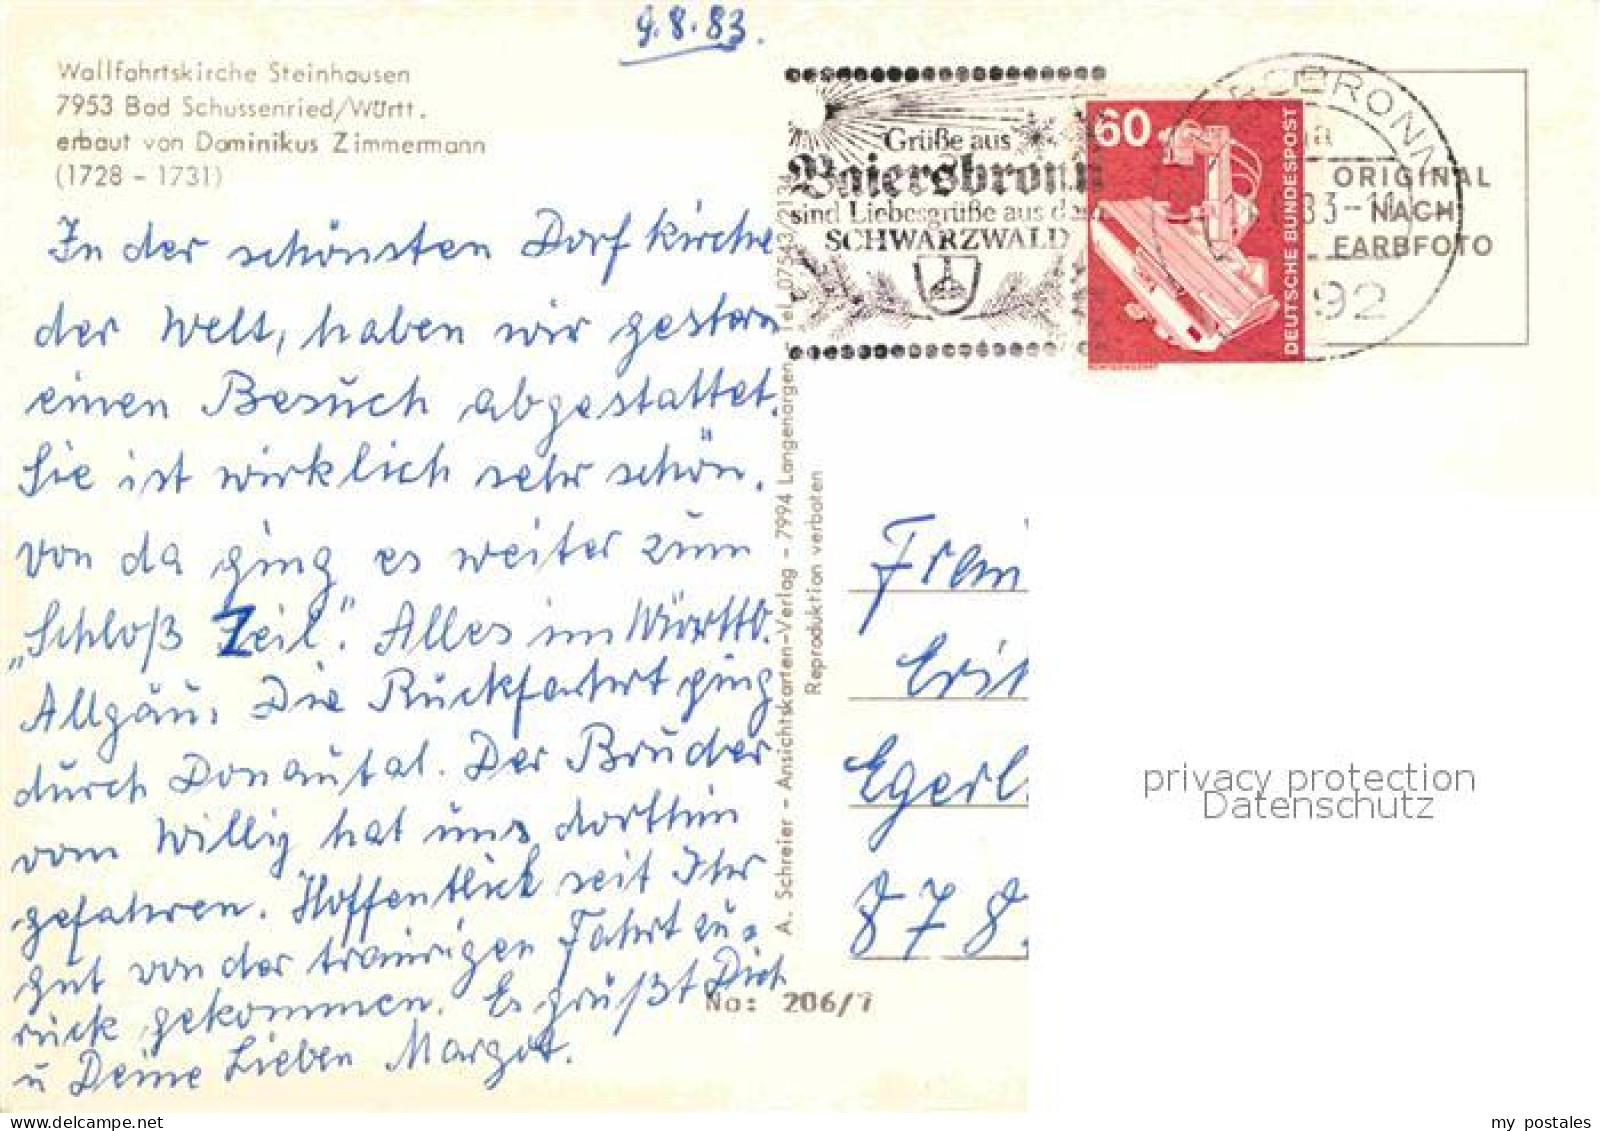 9.8.83.
Wallfahrtskirche Steinhausen
7953 Bad Schussenried/Württ.
erbaut von Dominikus Zimmermann
(1728 - 1731)
In der schönsten Dorfkirche
der Welt, haben wir gestern
einen Besuch abgestattet.
Sie ist wirklich sehr schön.
von da ging es weiter zum
„Schloß Zeil“. Alles im Württb.
Allgäu. Die Rückfahrt ging
durch Donautal. Der Bruder
vom Willig hat uns dorthin
gefahren. Hoffentlich seit Ihr
gut von der traurigen Fahrt zu-
rück gekommen. Es grüßt Dich
u Deine Lieben Margot.
A. Schreier - Ansichtskarten-Verlag - 7994 Langenargen - Tel. 07543/2134
Reproduktion verboten
No: 206/7
Grüße aus
Baiersbronn
sind Liebesgrüße aus dem
SCHWARZWALD
60
DEUTSCHE BUNDESPOST
ERSBRONN
83-1
92
ORIGINAL
NACH
FARBFOTO
Egerl
878
privacy protection
Datenschutz
my postales